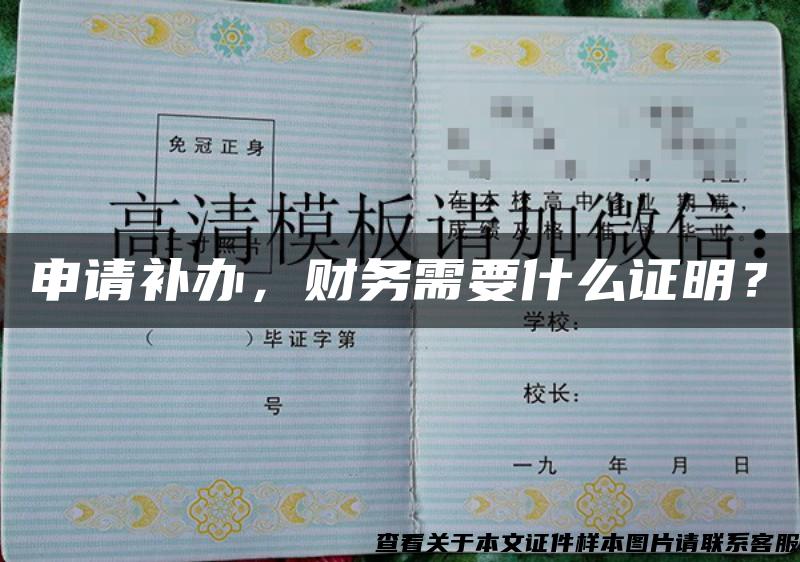 免冠正身
二寸照片
（ ）毕证字第
号
在本校高中修业期满，
成绩及格，准予毕业。
学校：
校长：
一九 年 月 日
高清模板请加微信：
申请补办，财务需要什么证明？
查看关于本文证件样本图片请联系客服